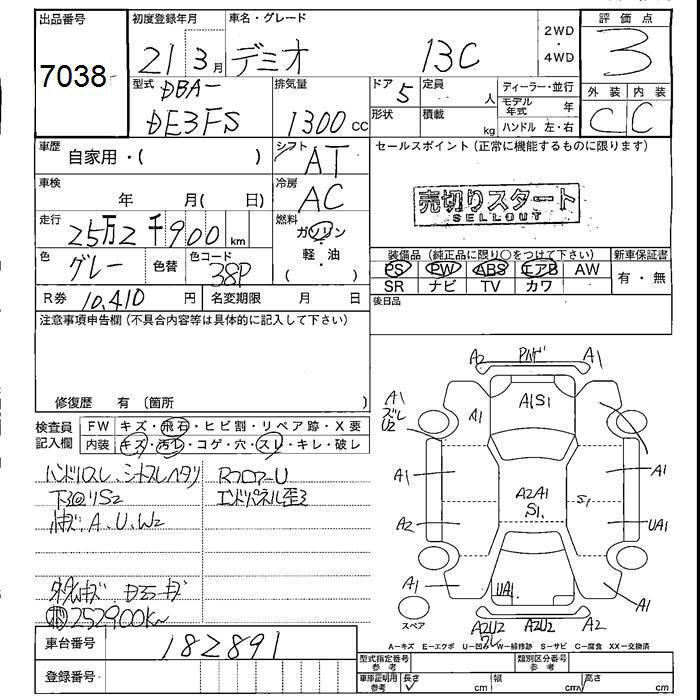 出品番号 初度登録年月 車名・グレード 2WD ・ 4WD 評価点
7038 21 3月 デミオ 13C 3
型式 DBA- DE3FS 排気量 1300 cc ドア 5 定員 人 ディーラー・並行 外装 内装
形状 積載 kg モデル年式 年 ハンドル 左・右 C C
車歴 自家用・( ) シフト AT セールスポイント (正常に機能するものに限ります)
車検 年 月( 日) 冷房 AC
売切りスタート
SELLOUT
走行 25万2千900 km 燃料 ガソリン 軽・油 ( )
色 グレー 色替 色コード 38P
装備品 (純正品に限り○をつけて下さい) 新車保証書
PS PW ABS エアB AW 有・無
SR ナビ TV カワ
R券 10,410 円 名変期限 月 日 後日品
注意事項申告欄(不具合内容等は具体的に記入して下さい)
修復歴 有 (箇所 )
検査員記入欄 FW キズ・飛石・ヒビ割・リペア跡・X要
内装 キズ・汚レ・コゲ・穴・スレ・キレ・破レ
ハンドルスレ、シートスレヘタリ RフロアーU
下回りS2 エンドパネル歪3
小キズ、A、U、W2
252900Km
車台番号 182891
登録番号
A2 A1
A1 ズレ U2
A1 A1S1
A1 A1
A2A1 S1 S1
A2 UA1
A1 UA1 A1
スペア
A2U2 ワレ A2U2 A2
A－キズ E－エクボ U－凹み W－補修跡 S－サビ C－腐食 XX－交換済
型式指定番号 参考 類別区分番号 参考
車庫証明用 参考 長さ cm 幅 cm 高さ cm